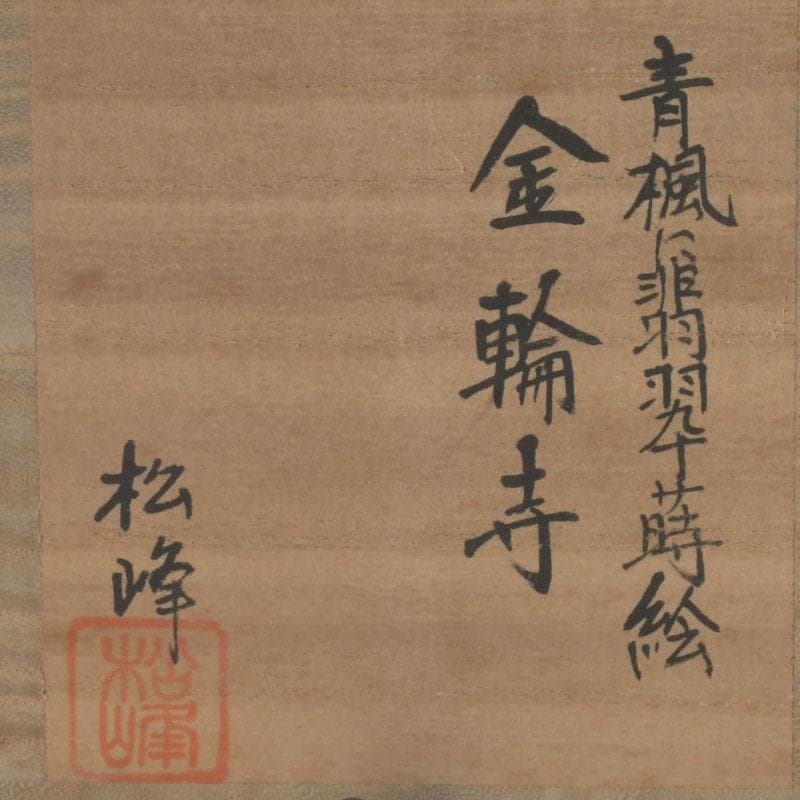 青楓に翡翠蒔絵
金輪寺
松峰
松峰